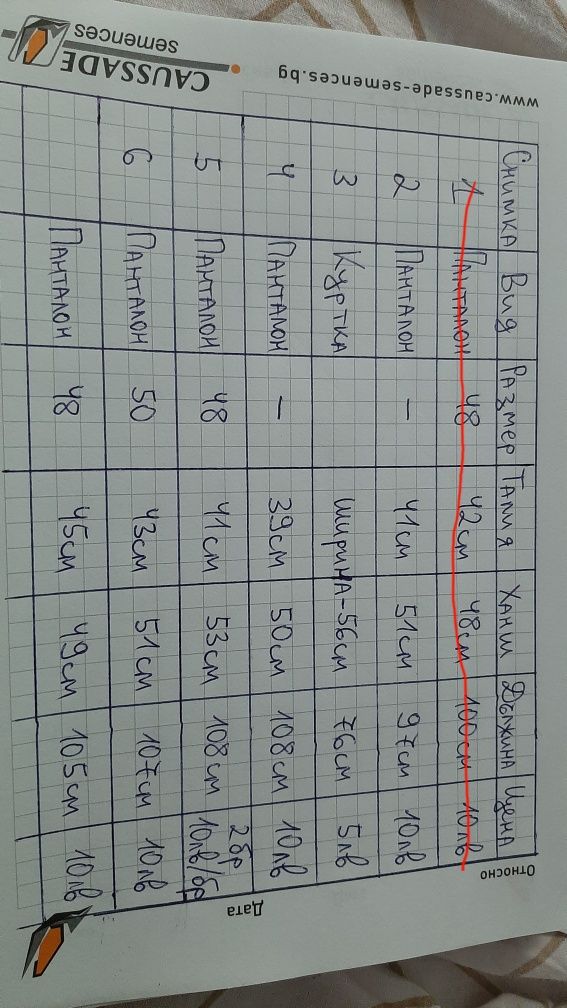 Относно
Дата
Снимка Вид Размер Талия Ханш Дължина Цена
1 Панталон 48 42см 48см 100см 10лв
2 Панталон - 41см 51см 97см 10лв
3 Куртка ширина-56см 76см 5лв
4 Панталон - 39см 50см 108см 10лв
5 Панталон 48 41см 53см 108см 2бр
10лв/бр
6 Панталон 50 43см 51см 107см 10лв
Панталон 48 45см 49см 105см 10лв
www.caussade-semences.bg
CAUSSADE
semences